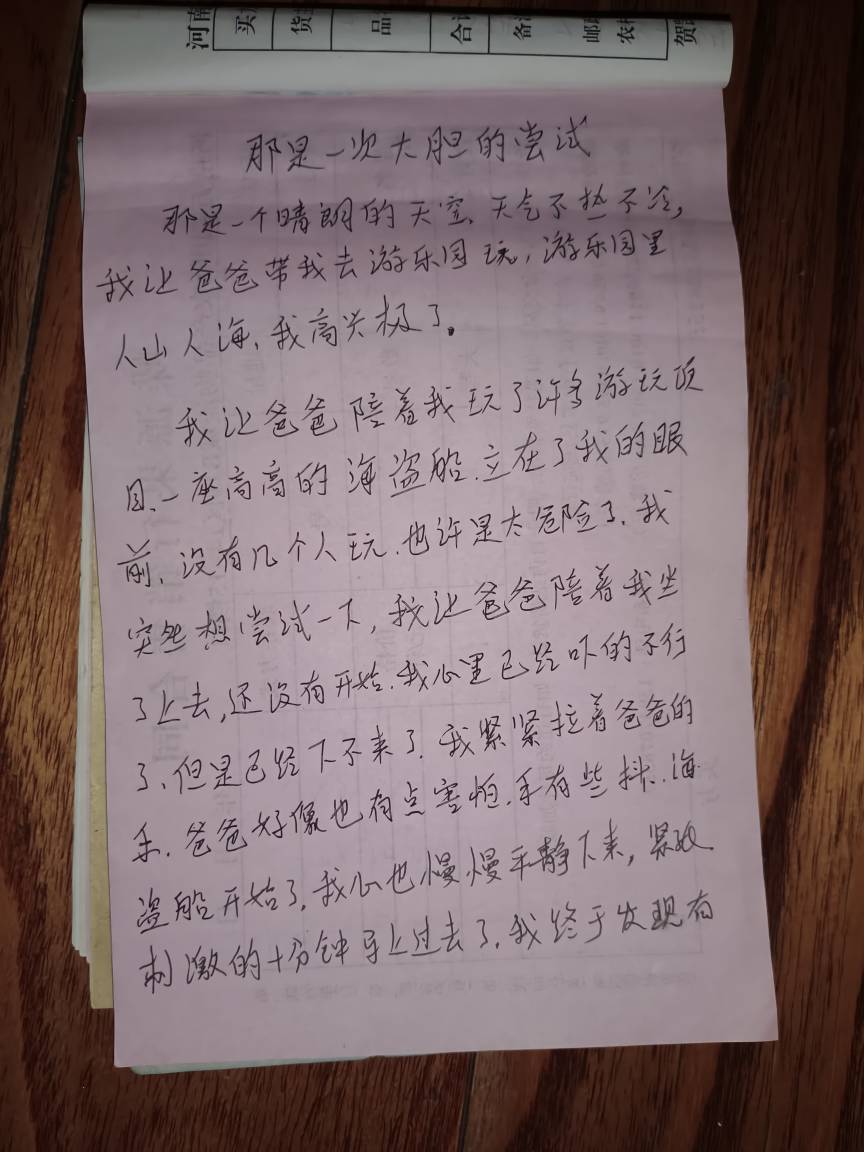 河南
买
货
品
合
备
邮
农村
贺
那是一次大胆的尝试
那是一个晴朗的天空、天气不热不冷,
我让爸爸带我去游乐园玩,游乐园里
人山人海、我高兴极了。
我让爸爸陪着我玩了许多游玩项
目、一座高高的海盗船、立在了我的眼
前、没有几个人玩、也许是太危险了、我
突然想尝试一下,我让爸爸陪着我坐
了上去,还没有开始、我心里已经吓的不行
了、但是已经下不来了、我紧紧拉着爸爸的
手、爸爸好像也有点害怕、手有些抖、海
盗船开始了、我心也慢慢平静下来,紧致
刺激的十分钟马上过去了、我终于发现有